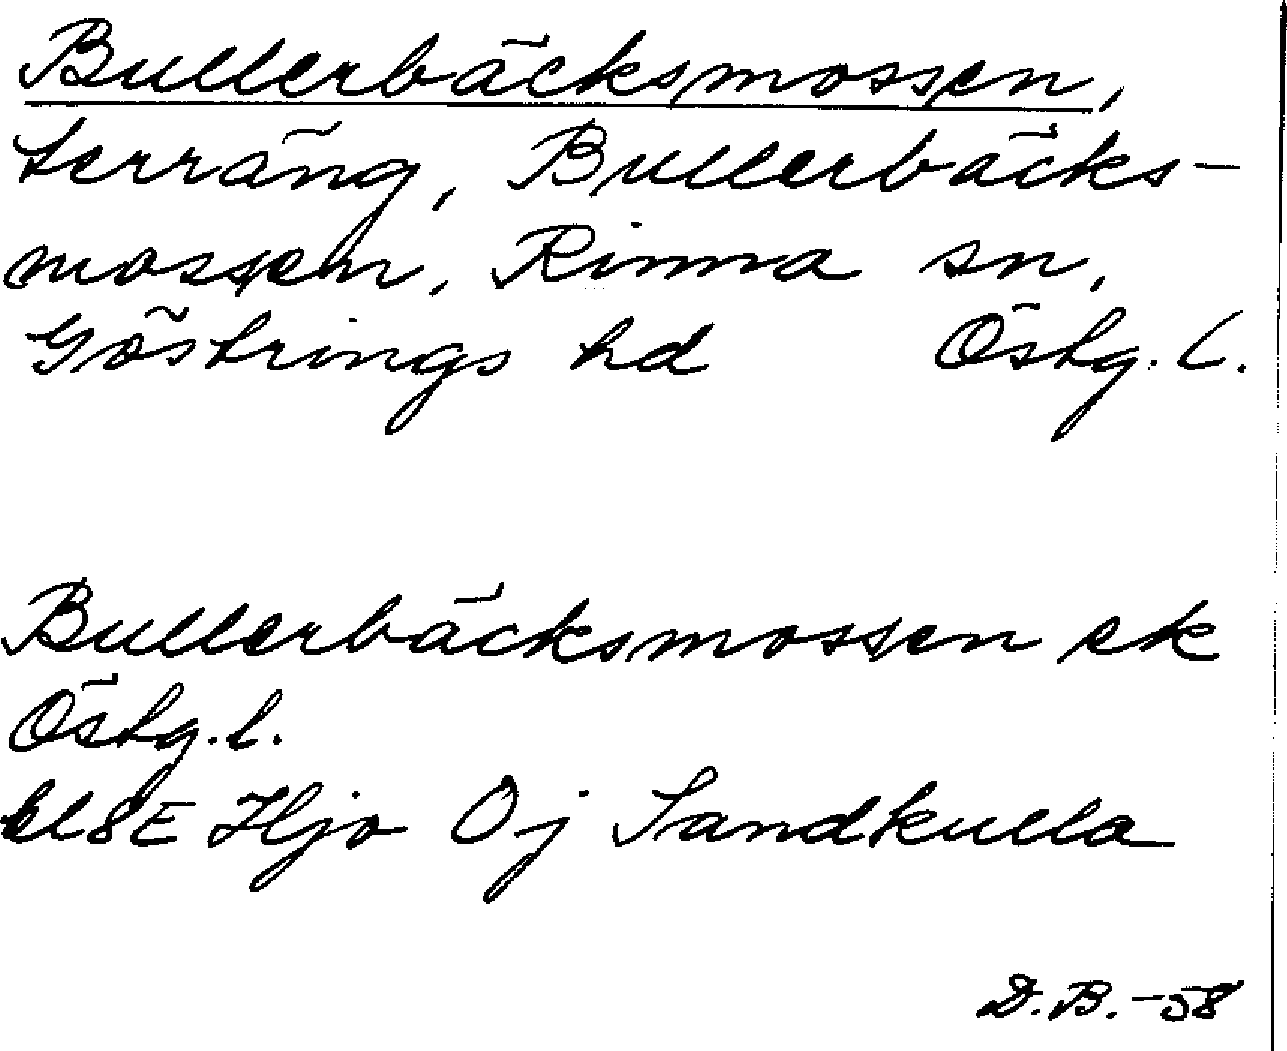 Bullerbäcksmossen,
terräng, Bullerbäcks-
mossen, Rinna sn,
Göstrings hd Östg. l.
Bullerbäcksmossen ek
Östg. l.
bl 8E Hjo Oj Sandkulla
D.B. -58